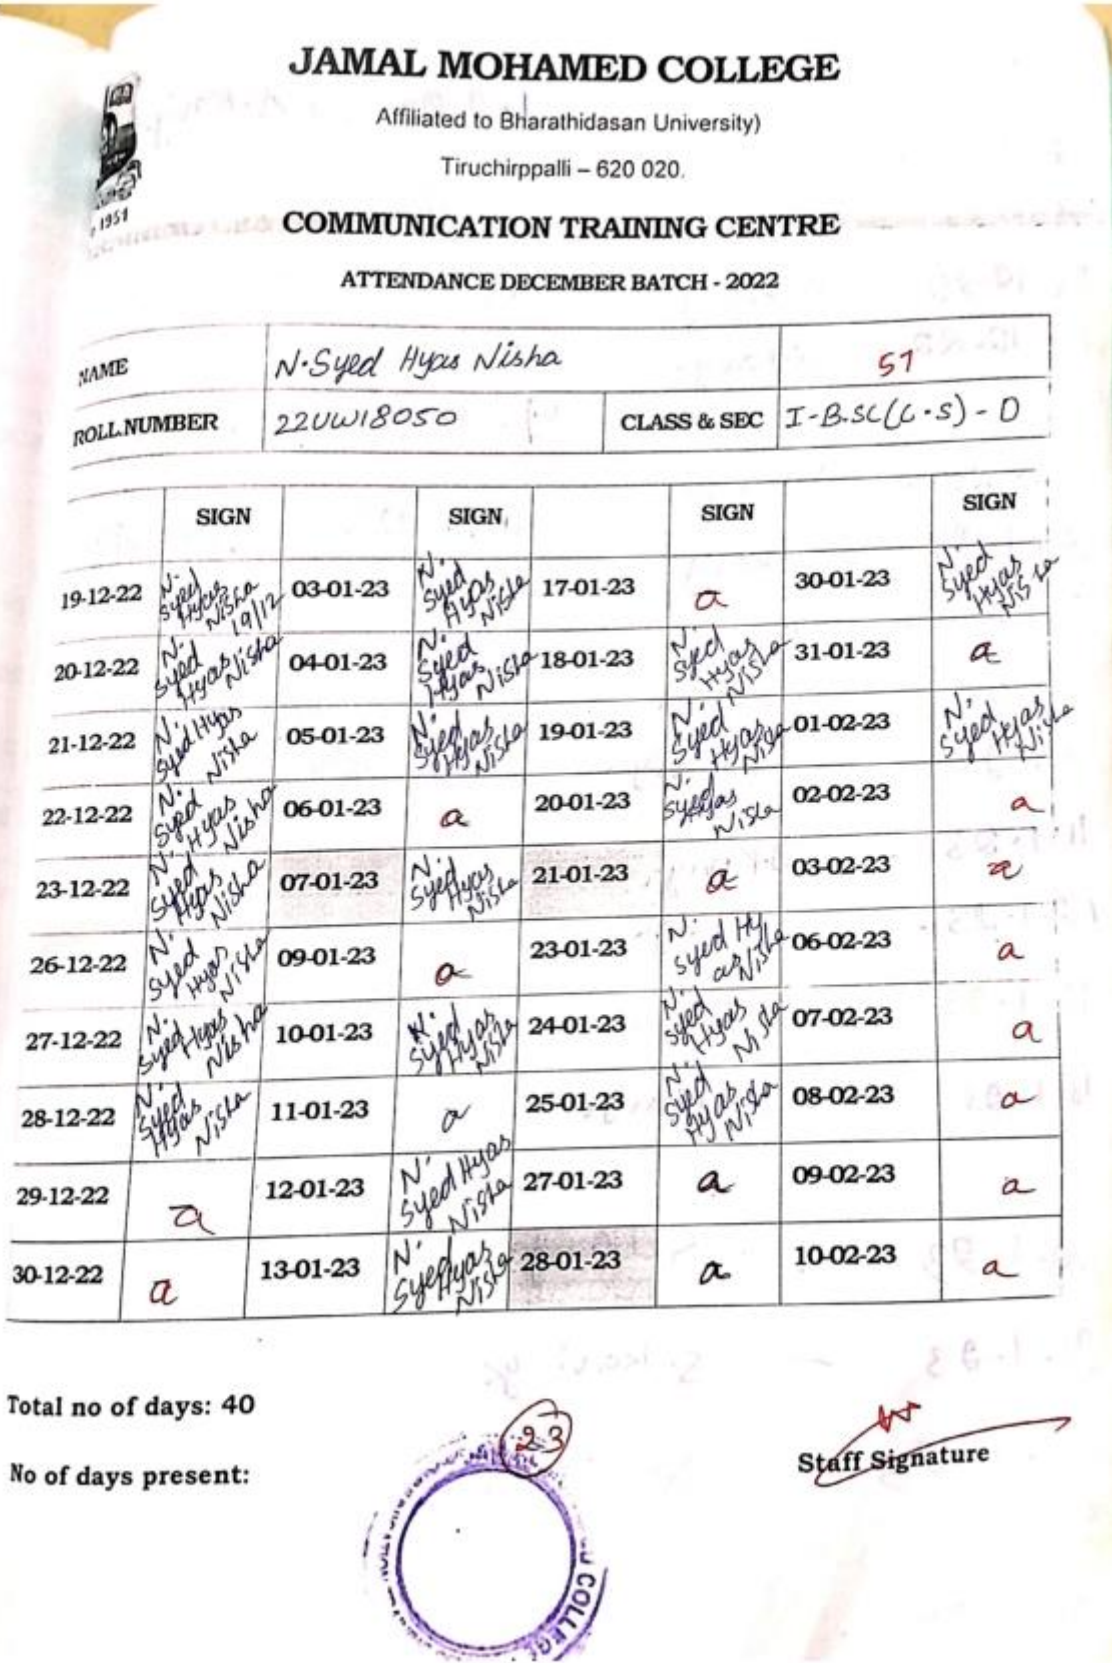 JAMAL MOHAMED COLLEGE
Affiliated to Bharathidasan University)
Tiruchirppalli – 620 020.
1951
COMMUNICATION TRAINING CENTRE
ATTENDANCE DECEMBER BATCH - 2022
NAME N.Syed Hyas Nisha 57
ROLL.NUMBER 22UWI8050 CLASS & SEC I-B.SC(C.S) - D
SIGN SIGN SIGN SIGN
19-12-22 N. Syed Hyas Nisha 19/12 03-01-23 N. Syed Hyas Nisha 17-01-23 a 30-01-23 N. Syed Hyas Nisha
20-12-22 N. Syed Hyas Nisha 04-01-23 N. Syed Hyas Nisha 18-01-23 N. Syed Hyas Nisha 31-01-23 a
21-12-22 N. Syed Hyas Nisha 05-01-23 N. Syed Hyas Nisha 19-01-23 N. Syed Hyas Nisha 01-02-23 N. Syed Hyas Nisha
22-12-22 N. Syed Hyas Nisha 06-01-23 a 20-01-23 N. Syed Hyas Nisha 02-02-23 a
23-12-22 N. Syed Hyas Nisha 07-01-23 N. Syed Hyas Nisha 21-01-23 a 03-02-23 a
26-12-22 N. Syed Hyas Nisha 09-01-23 a 23-01-23 N. Syed Hyas Nisha 06-02-23 a
27-12-22 N. Syed Hyas Nisha 10-01-23 N. Syed Hyas Nisha 24-01-23 N. Syed Hyas Nisha 07-02-23 a
28-12-22 N. Syed Hyas Nisha 11-01-23 a 25-01-23 N. Syed Hyas Nisha 08-02-23 a
29-12-22 a 12-01-23 N. Syed Hyas Nisha 27-01-23 a 09-02-23 a
30-12-22 a 13-01-23 N. Syed Hyas Nisha 28-01-23 a 10-02-23 a
Total no of days: 40
No of days present: 23
Staff Signature
COLLEGE